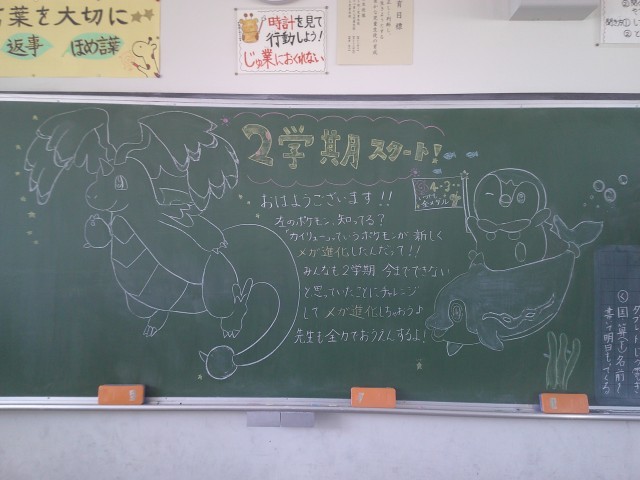 言葉を大切に
返事 ほめ言葉
時計を見て
行動しよう！
じゅ業におくれない
２学期スタート！
おはようございます！！
左のポケモン、知ってる？
「カイリュー」っていうポケモンが新しく
メガ進化したんだって！！
みんなも２学期 今までできない
と思っていたことにチャレンジ
して メガ進化しちゃおう♪
先生も全力でおうえんするよ！
4-3
金メダル
国・算(下)名前を
書いて明日もってくる